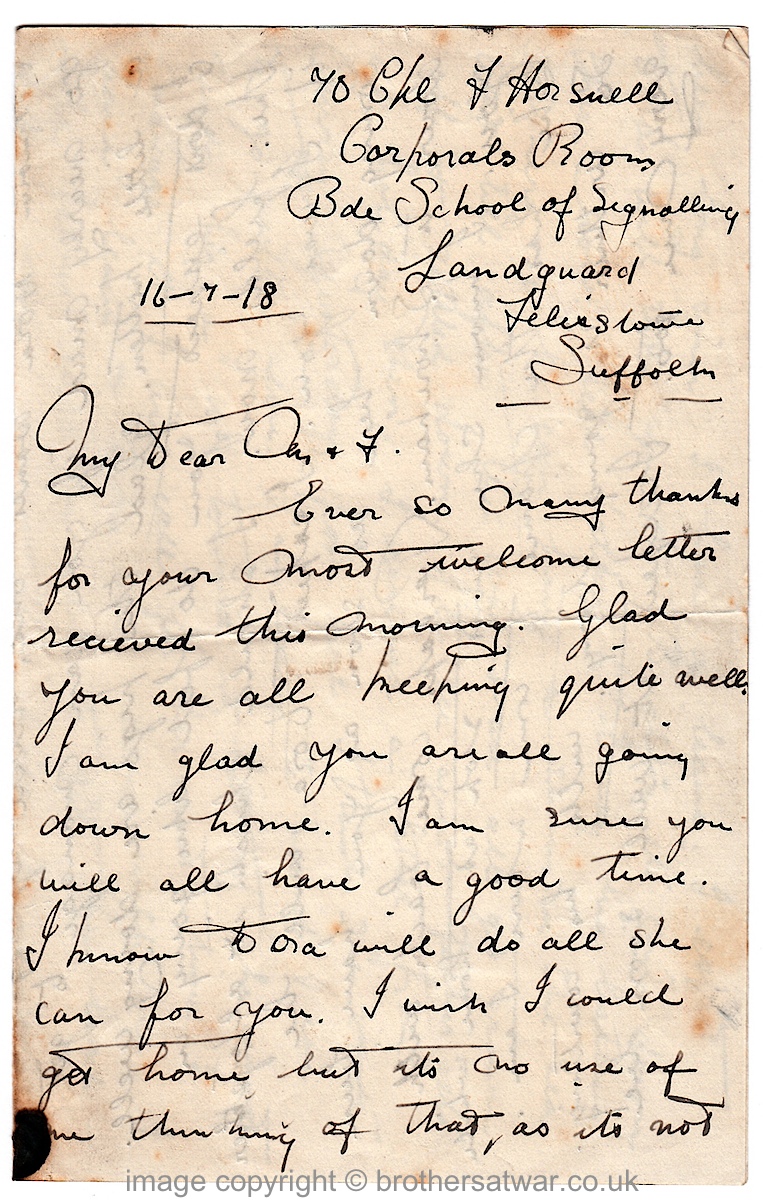 70 Cpl F Horsnell
Corporals Room
Bde School of Signalling
Landguard
Felixstowe
Suffolk
16-7-18
My Dear & F.
Ever so many thanks
for your most welcome letter
recieved this morning. Glad
you are all keeping quite well.
I am glad you are all going
down home. I am sure you
will all have a good time.
I know Dora will do all she
can for you. I wish I could
get home, but it's no use of
me thinking of that, as its not
image copyright © brothersatwar.co.uk